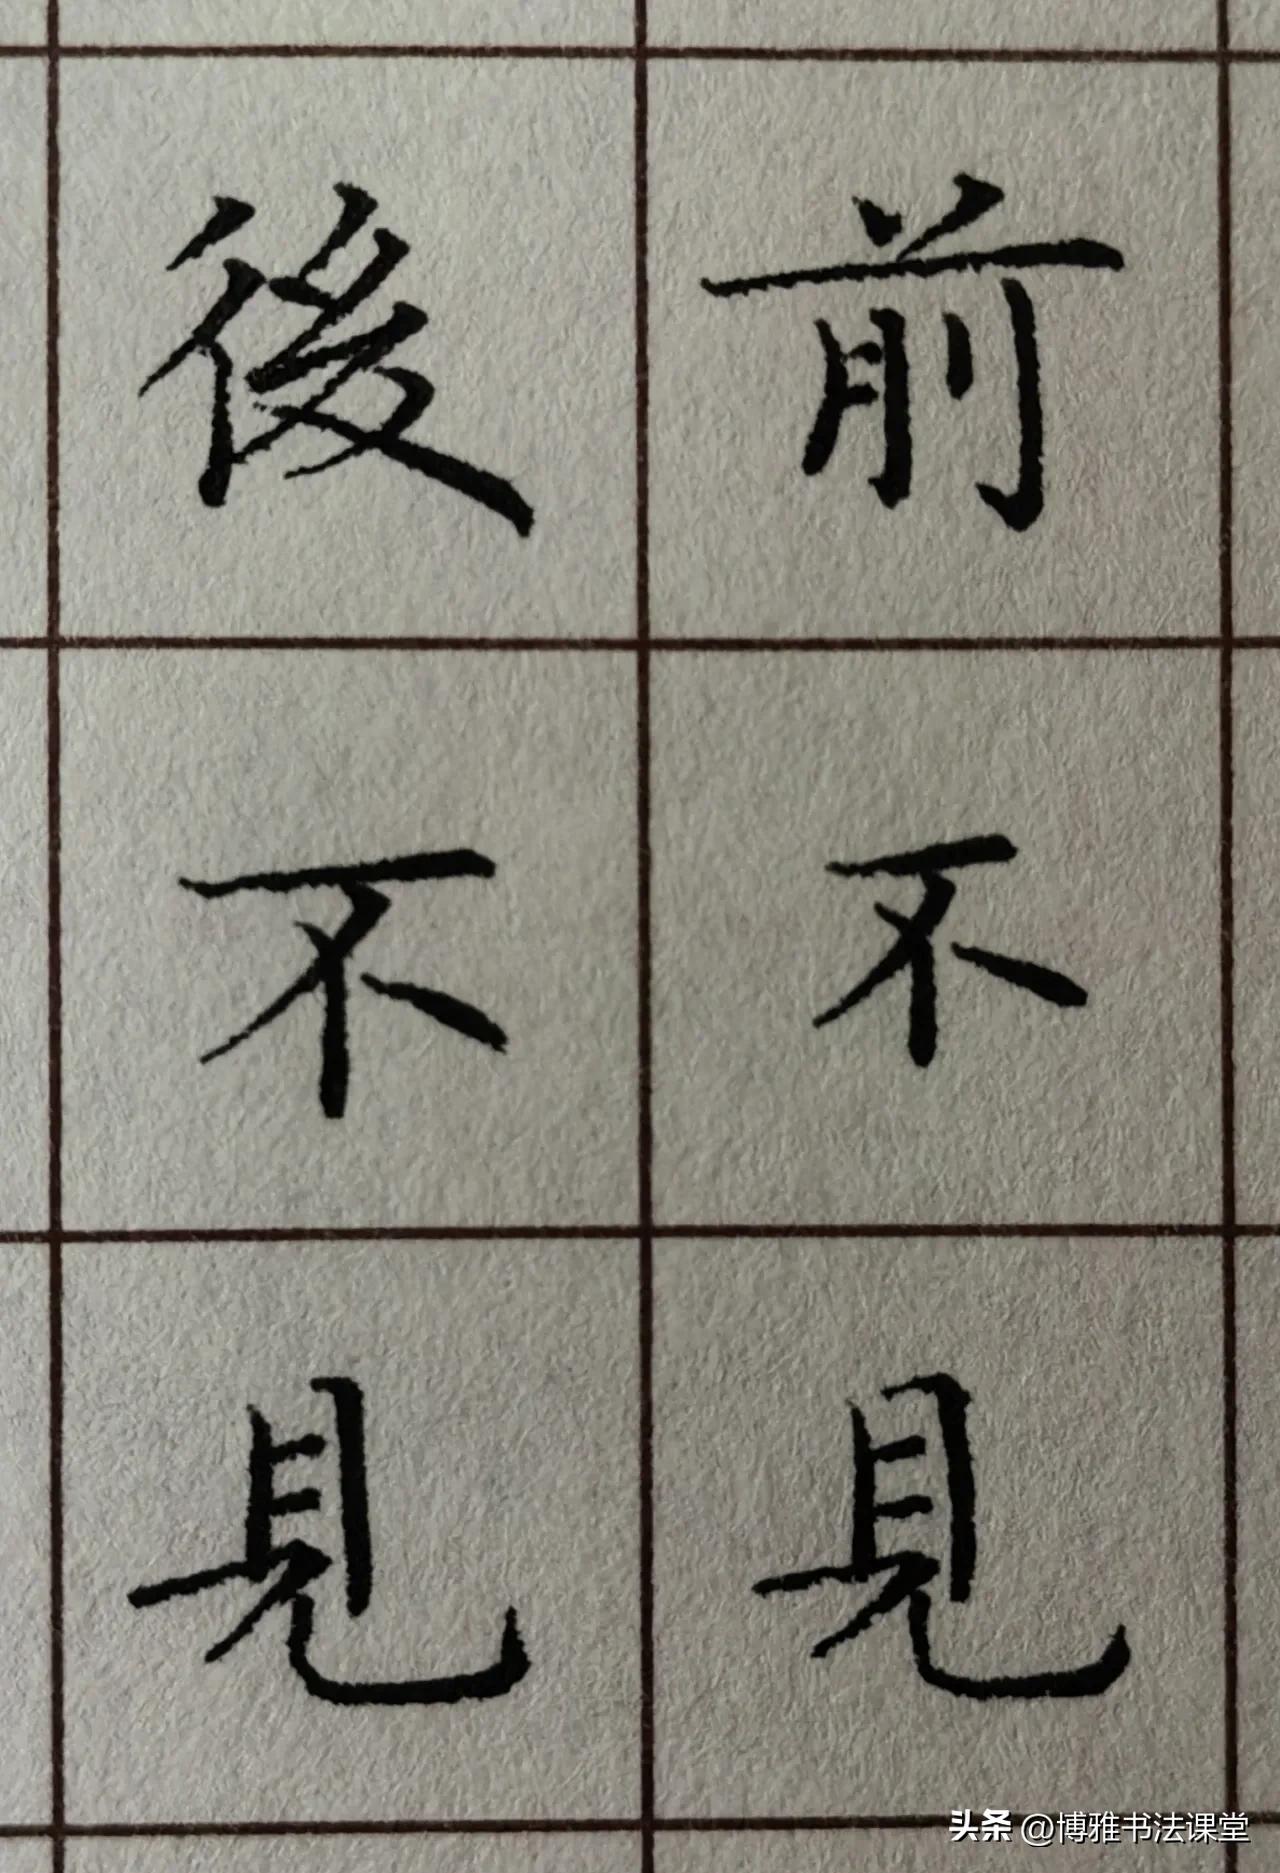 前不見
後不見
头条 @博雅书法课堂